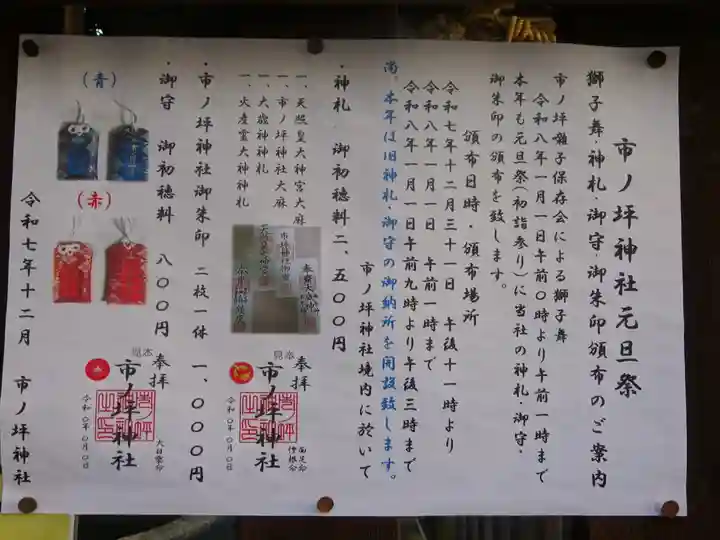 市ノ坪神社元旦祭
獅子舞・神札・御守・御朱印頒布のご案内
市ノ坪囃子保存会による獅子舞
令和八年一月一日午前０時より午前一時まで
本年も元旦祭(初詣参り)に当社の神札・御守・
御朱印の頒布を致します。
頒布日時・頒布場所
令和七年十二月三十一日　午後十一時より
令和八年一月一日　午前一時まで
令和八年一月一日午前九時より午後三時まで
尚。本年は旧神札・御守の御納所を開設致します。
市ノ坪神社境内に於いて
・神札　御初穂料二、五００円
一、天照皇大神宮大麻
一、市ノ坪神社大麻
一、大歳神神札
一、火産霊大神神札
・市ノ坪神社御朱印　二枚一体　一、０００円
見本
奉拝
市ノ坪神社
令和０年０月０日
見本
奉拝
市ノ坪神社
令和０年０月０日
・御守　御初穂料　八００円
(青)
(赤)
令和七年十二月　市ノ坪神社